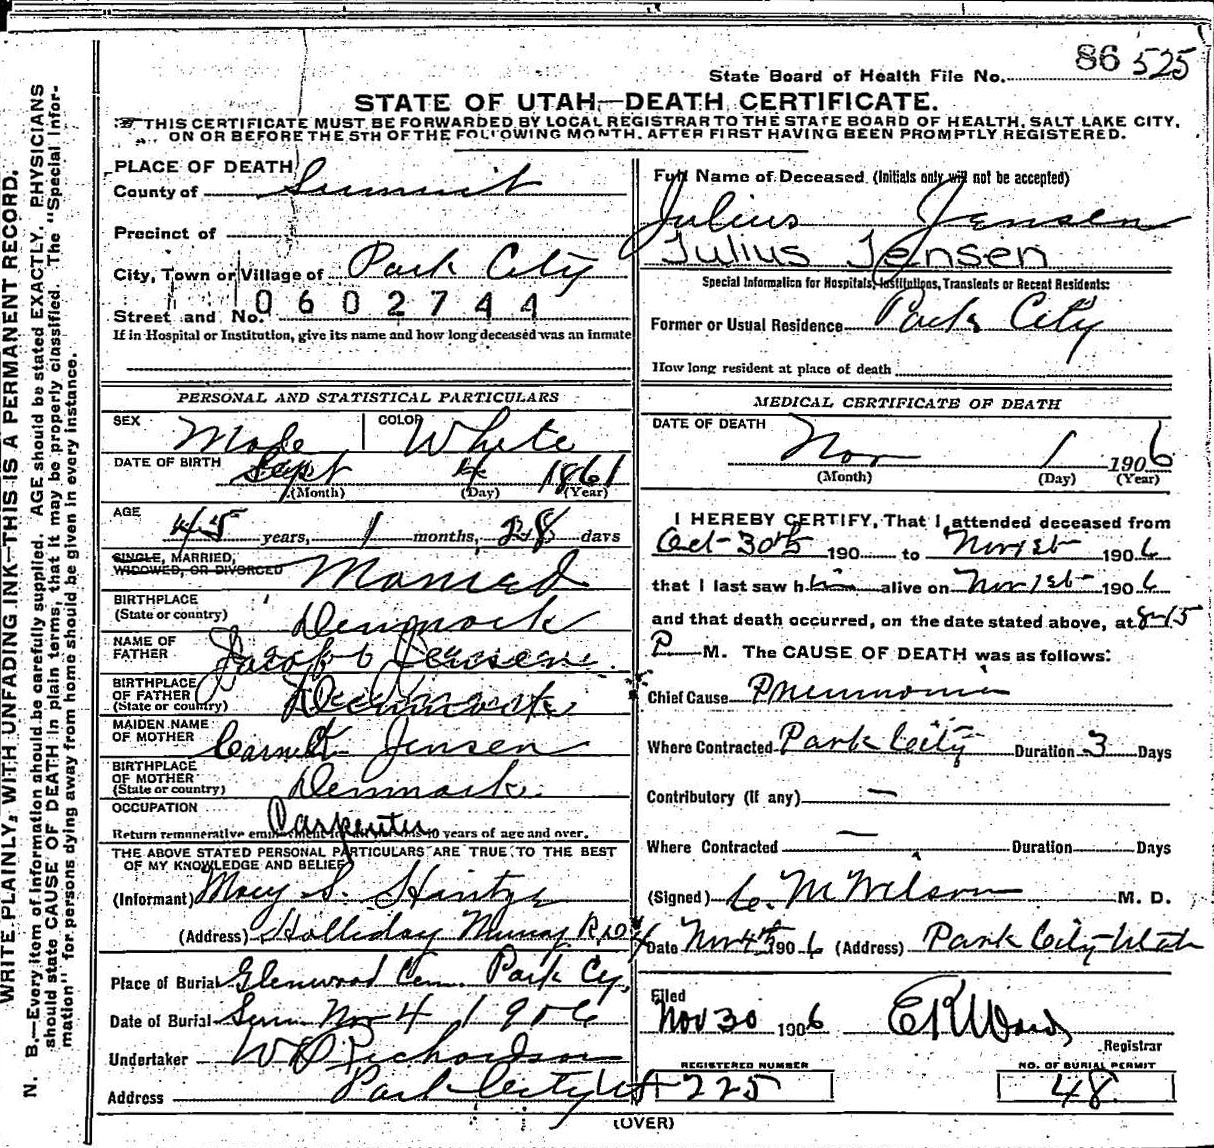 86 525
State Board of Health File No.
STATE OF UTAH—DEATH CERTIFICATE.
THIS CERTIFICATE MUST BE FORWARDED BY LOCAL REGISTRAR TO THE STATE BOARD OF HEALTH, SALT LAKE CITY,
ON OR BEFORE THE 5TH OF THE FOLLOWING MONTH, AFTER FIRST HAVING BEEN PROMPTLY REGISTERED.
WRITE PLAINLY, WITH UNFADING INK—THIS IS A PERMANENT RECORD.
N. B.—Every item of information should be carefully supplied. AGE should be stated EXACTLY. PHYSICIANS
should state CAUSE OF DEATH in plain terms, that it may be properly classified. The "Special Infor-
mation" for persons dying away from home should be given in every instance.
PLACE OF DEATH
County of Summit
Precinct of
City, Town or Village of Park City
0602744
Street and No.
If in Hospital or Institution, give its name and how long deceased was an inmate
Full Name of Deceased (Initials only will not be accepted)
Julius Jensen
Julius Jensen
Special Information for Hospitals, Institutions, Transients or Recent Residents:
Former or Usual Residence Park City
How long resident at place of death
PERSONAL AND STATISTICAL PARTICULARS
SEX Male COLOR White
DATE OF BIRTH Sept 4 1861
(Month) (Day) (Year)
AGE
45 years, 1 months, 28 days
SINGLE, MARRIED,
WIDOWED, OR DIVORCED Married
BIRTHPLACE
(State or country) Denmark
NAME OF
FATHER Jacob Jensen
BIRTHPLACE
OF FATHER
(State or country) Denmark
MAIDEN NAME
OF MOTHER Jensen
BIRTHPLACE
OF MOTHER
(State or country) Denmark
OCCUPATION Carpenter
Return remunerative employment for all persons 10 years of age and over.
THE ABOVE STATED PERSONAL PARTICULARS ARE TRUE TO THE BEST
OF MY KNOWLEDGE AND BELIEF
(Informant) Mary S.
(Address) Holliday Murray R.D. 4
Place of Burial Glenwood Cem. Park Cy.
Date of Burial Sun Nov 4 1906
Undertaker W D Richardson
Address Park City Ut
MEDICAL CERTIFICATE OF DEATH
DATE OF DEATH
Nov 1 1906
(Month) (Day) (Year)
I HEREBY CERTIFY, That I attended deceased from
Oct 30th 190 to Nov 1st 1906
that I last saw him alive on Nov 1st 1906
and that death occurred, on the date stated above, at 8-15
P M. The CAUSE OF DEATH was as follows:
Chief Cause Pneumonia
Where Contracted Park City Duration 3 Days
Contributory (if any) —
Where Contracted — Duration Days
(Signed) C. M Wilson M. D.
Date Nov 4th 1906 (Address) Park City Utah
Filed
Nov 30 1906 E R Ward
Registrar
REGISTERED NUMBER
225
NO. OF BURIAL PERMIT
48
(OVER)